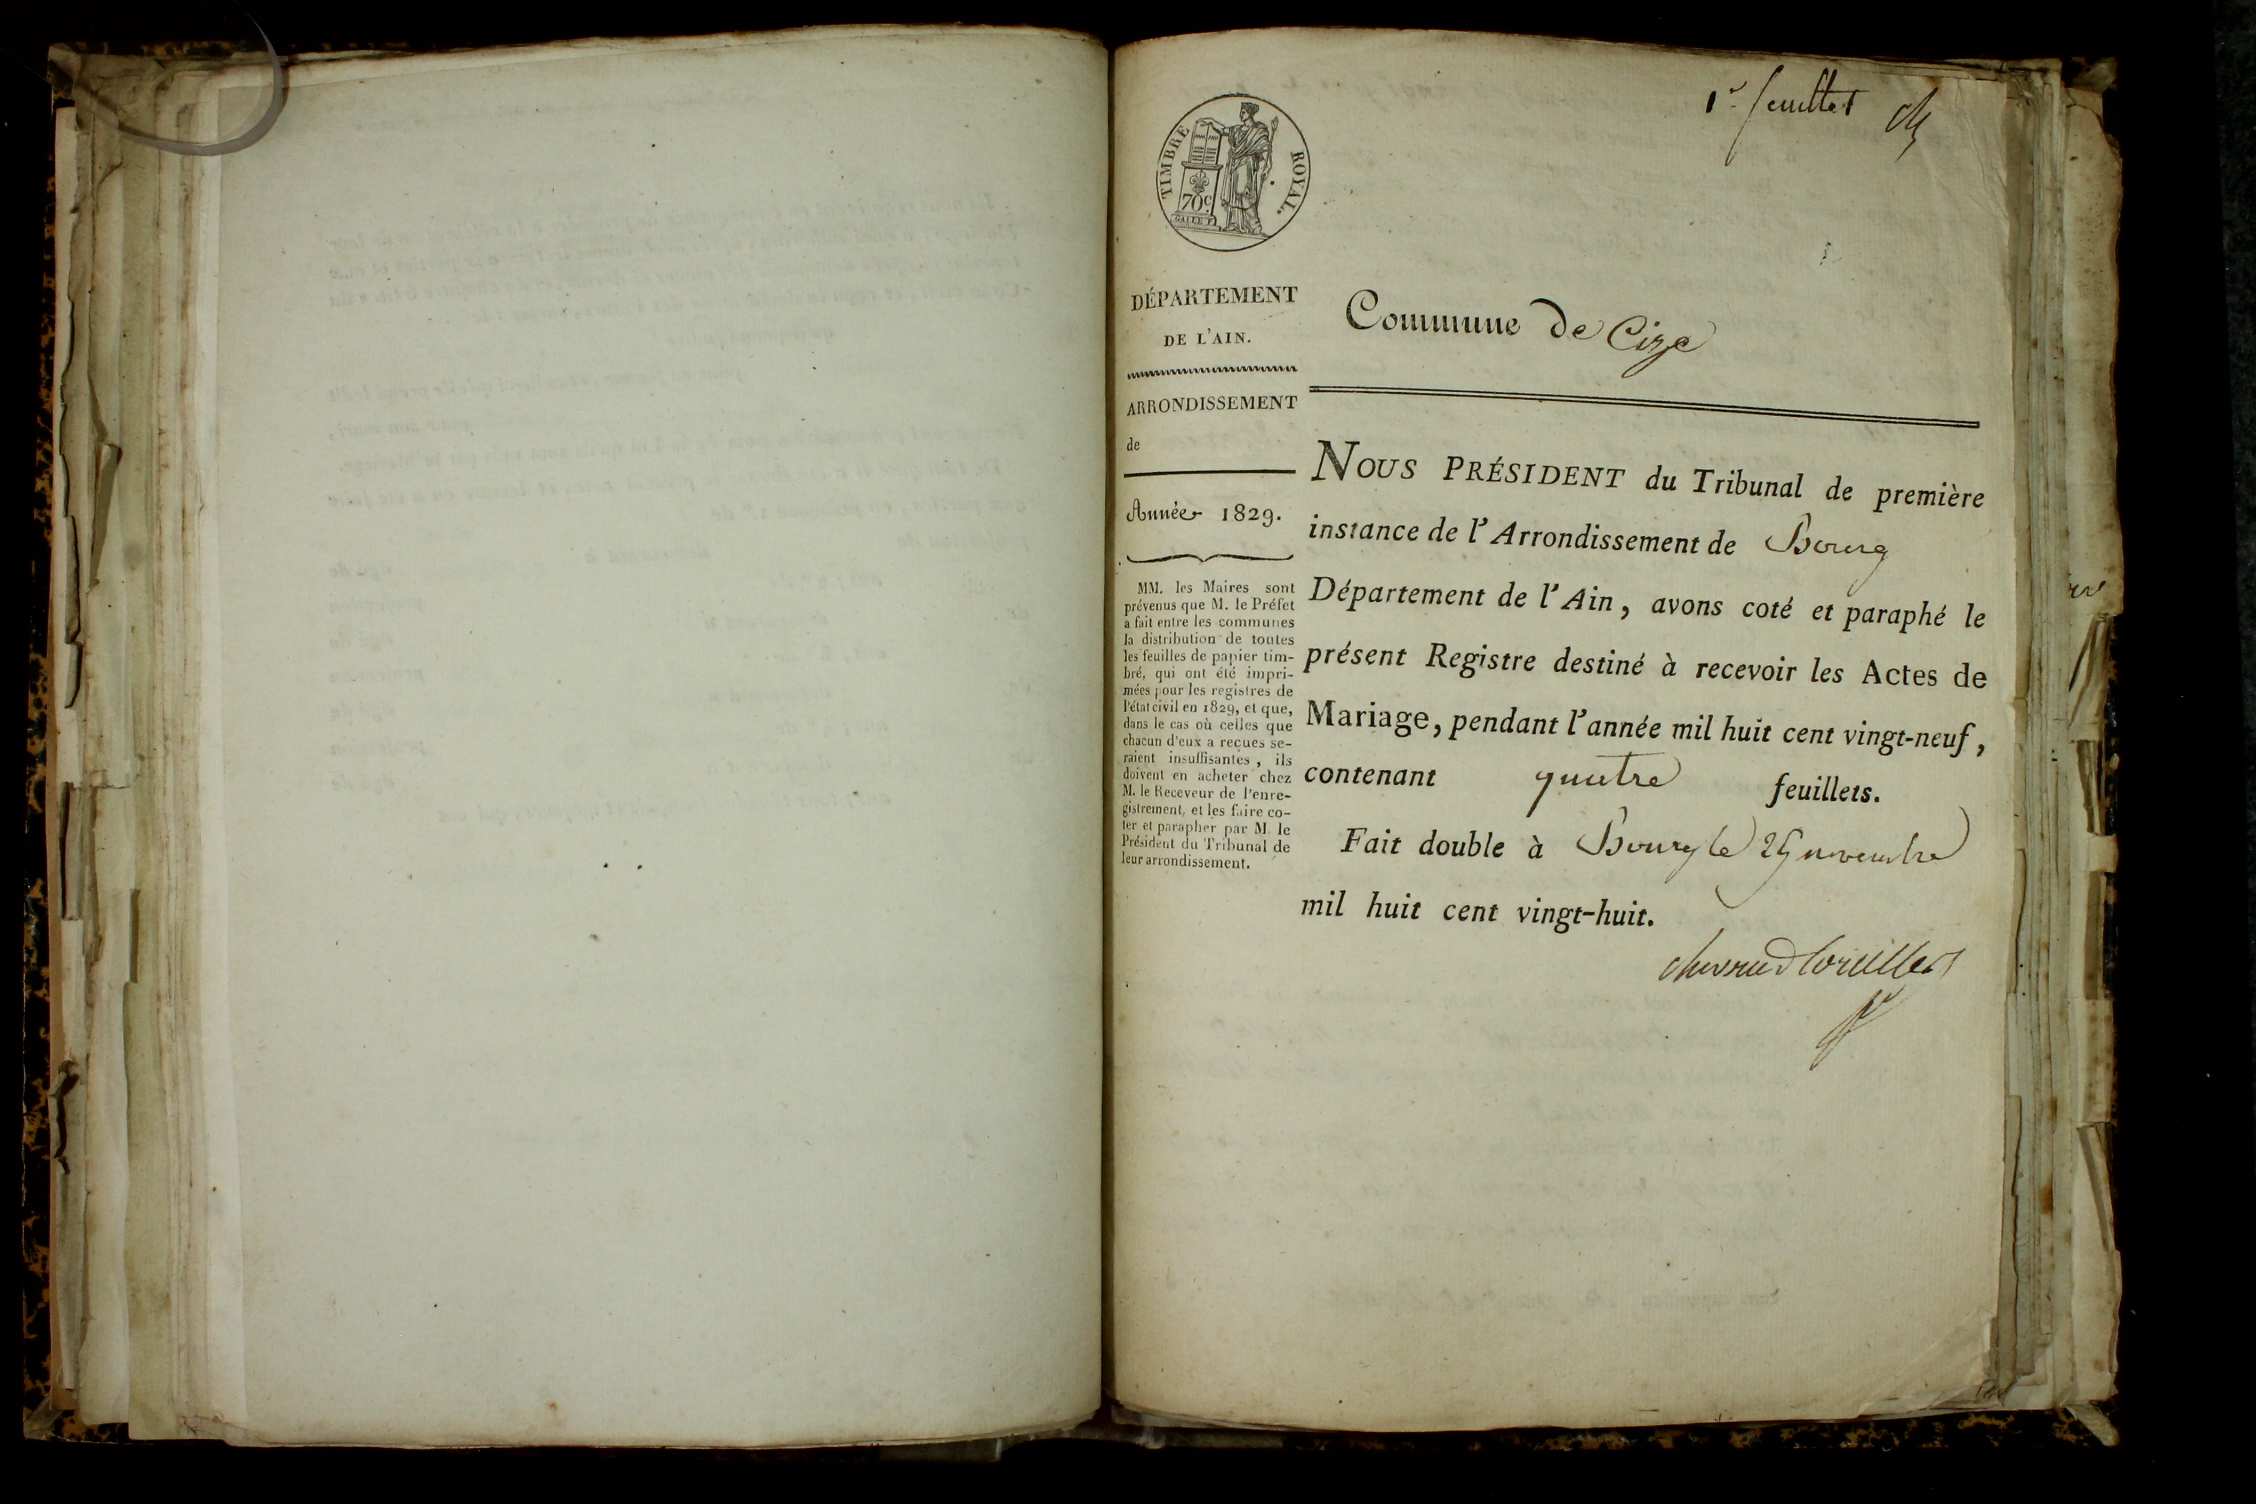 1er feuillet
TIMBRE ROYAL.
70c
DÉPARTEMENT
DE L'AIN.
ARRONDISSEMENT
de
Année 1829.
MM. les Maires sont
prévenus que M. le Préfet
a fait entre les communes
la distribution de toutes
les feuilles de papier tim-
bré, qui ont été impri-
mées pour les registres de
l'état civil en 1829, et que,
dans le cas où celles que
chacun d'eux a reçues se-
raient insuffisantes, ils
doivent en acheter chez
M. le Receveur de l'enre-
gistrement, et les faire co-
ter et parapher par M. le
Président du Tribunal de
leur arrondissement.
Commune de Cize
NOUS PRÉSIDENT du Tribunal de première
instance de l'Arrondissement de Bourg
Département de l'Ain, avons coté et paraphé le
présent Registre destiné à recevoir les Actes de
Mariage, pendant l'année mil huit cent vingt-neuf,
contenant quatre feuillets.
Fait double à Bourg le 25 novembre
mil huit cent vingt-huit.